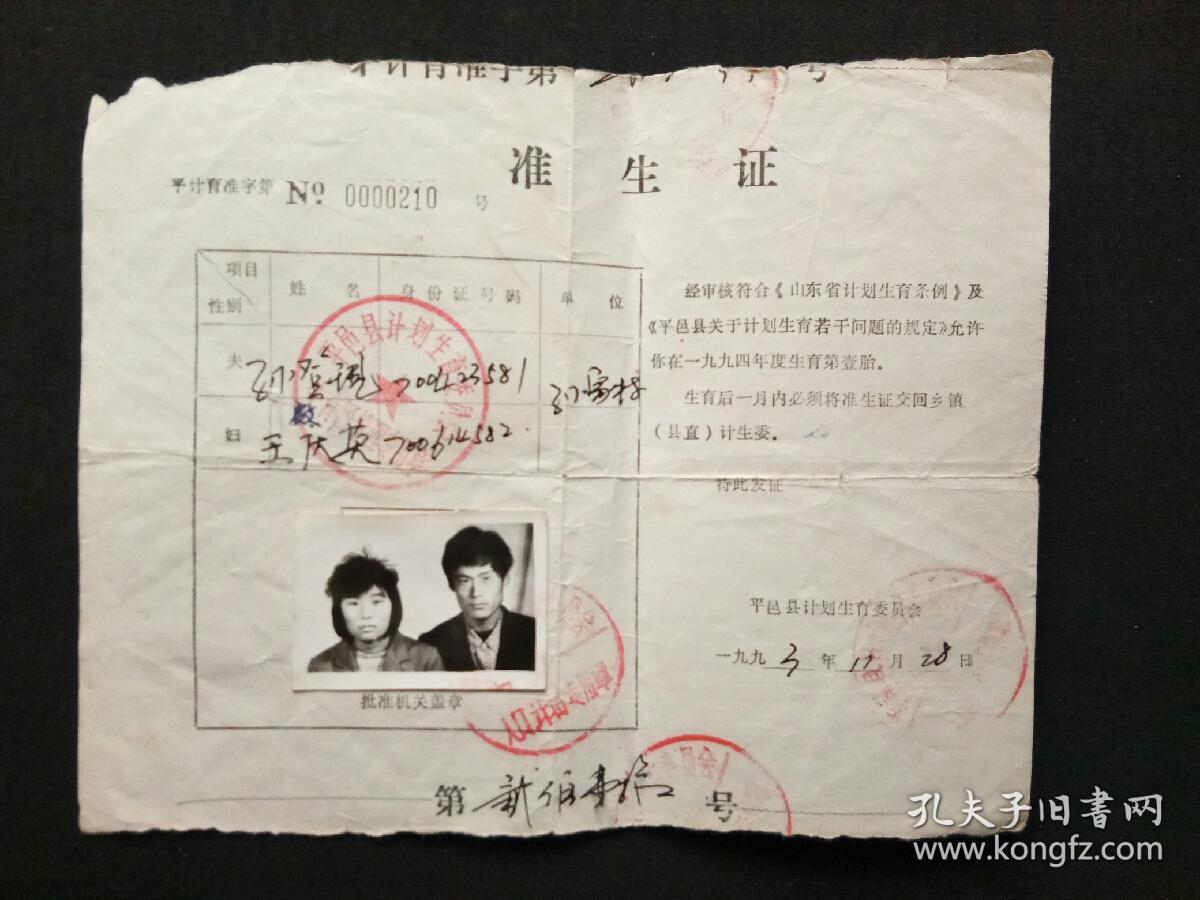 准生证
平计育准字第 Nº 0000210 号
项目
性别
姓名
身份证号码
单位
夫
妇
王庆英 700614582
批准机关盖章
平邑县计划生育委员
经审核符合《山东省计划生育条例》及
《平邑县关于计划生育若干问题的规定》允许
你在一九九四年度生育第壹胎。
生育后一月内必须将准生证交回乡镇
(县直)计生委。
特此发证
平邑县计划生育委员会
一九九3年12月28日
第贰佰壹拾号
孔夫子旧书网
www.kongfz.com